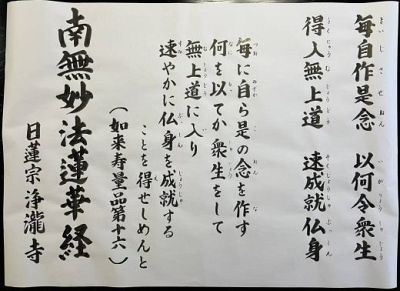 毎自作是念　以何令衆生
得入無上道　速成就仏身
毎に自ら是の念を作す
何を以てか衆生をして
無上道に入り
速やかに仏身を成就する
ことを得せしめんと
（如来寿量品第十六）
南無妙法蓮華経
日蓮宗 浄瀧寺